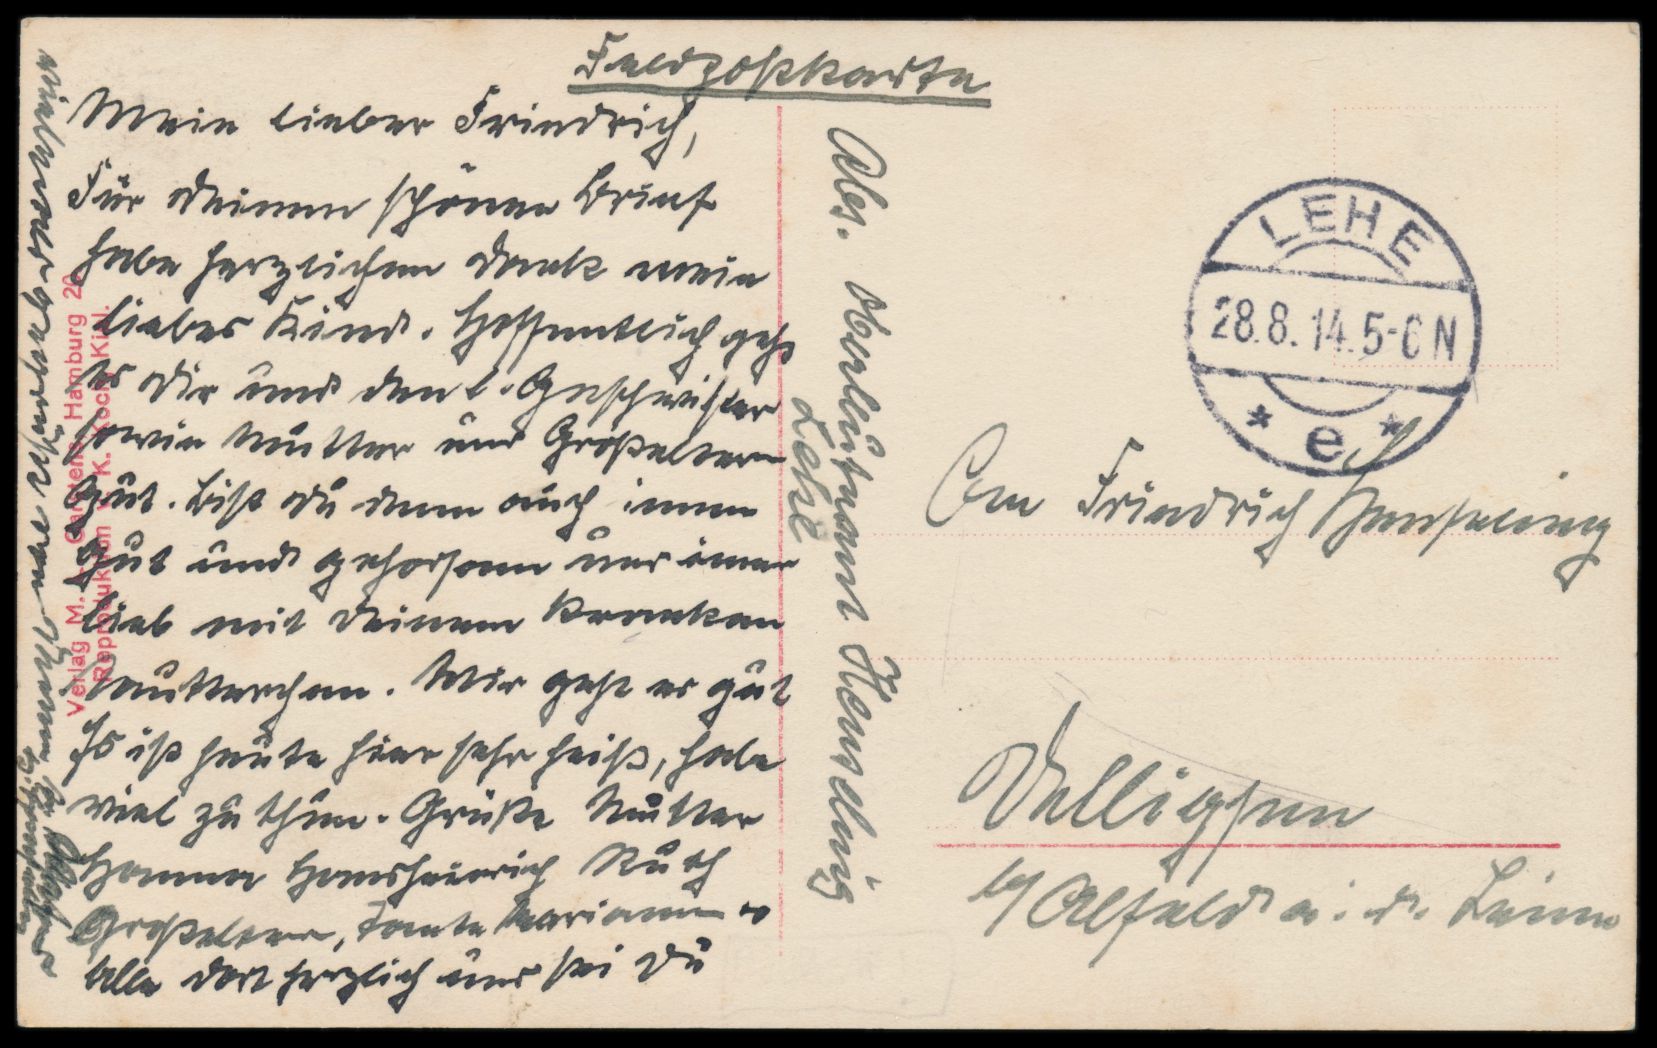 Feldpostkarte
Mein lieber Friedrich,
Für Deinen schönen Brief
habe herzlichen Dank mein
liebes Kind. Hoffentlich geht
es Dir und den l. Geschwister
sowie Mutter und Großeltern
gut. Bist Du denn auch immer
gut und gehorsam und immer
lieb mit Deinem kranken
Mutterchen. Mir geht es gut
Es ist heute hier sehr heiß, habe
viel zu thun. Grüße Mutter
Hanna Hansheinrich Ruth
Großeltern, Tante Marianne u
Alle dort herzlich und sei Du
vielmals gegrüßt von Deinem
Abs. Oberleutnant Henseling
Lehe
LEHE
28.8.14.5-6N
* e *
An Friedrich Henseling
Delligsen
b/ Alfeld a. d. Leine
Verlag M. Carstens Hamburg 2
Reproduktion K. K. Koch, Kiel.